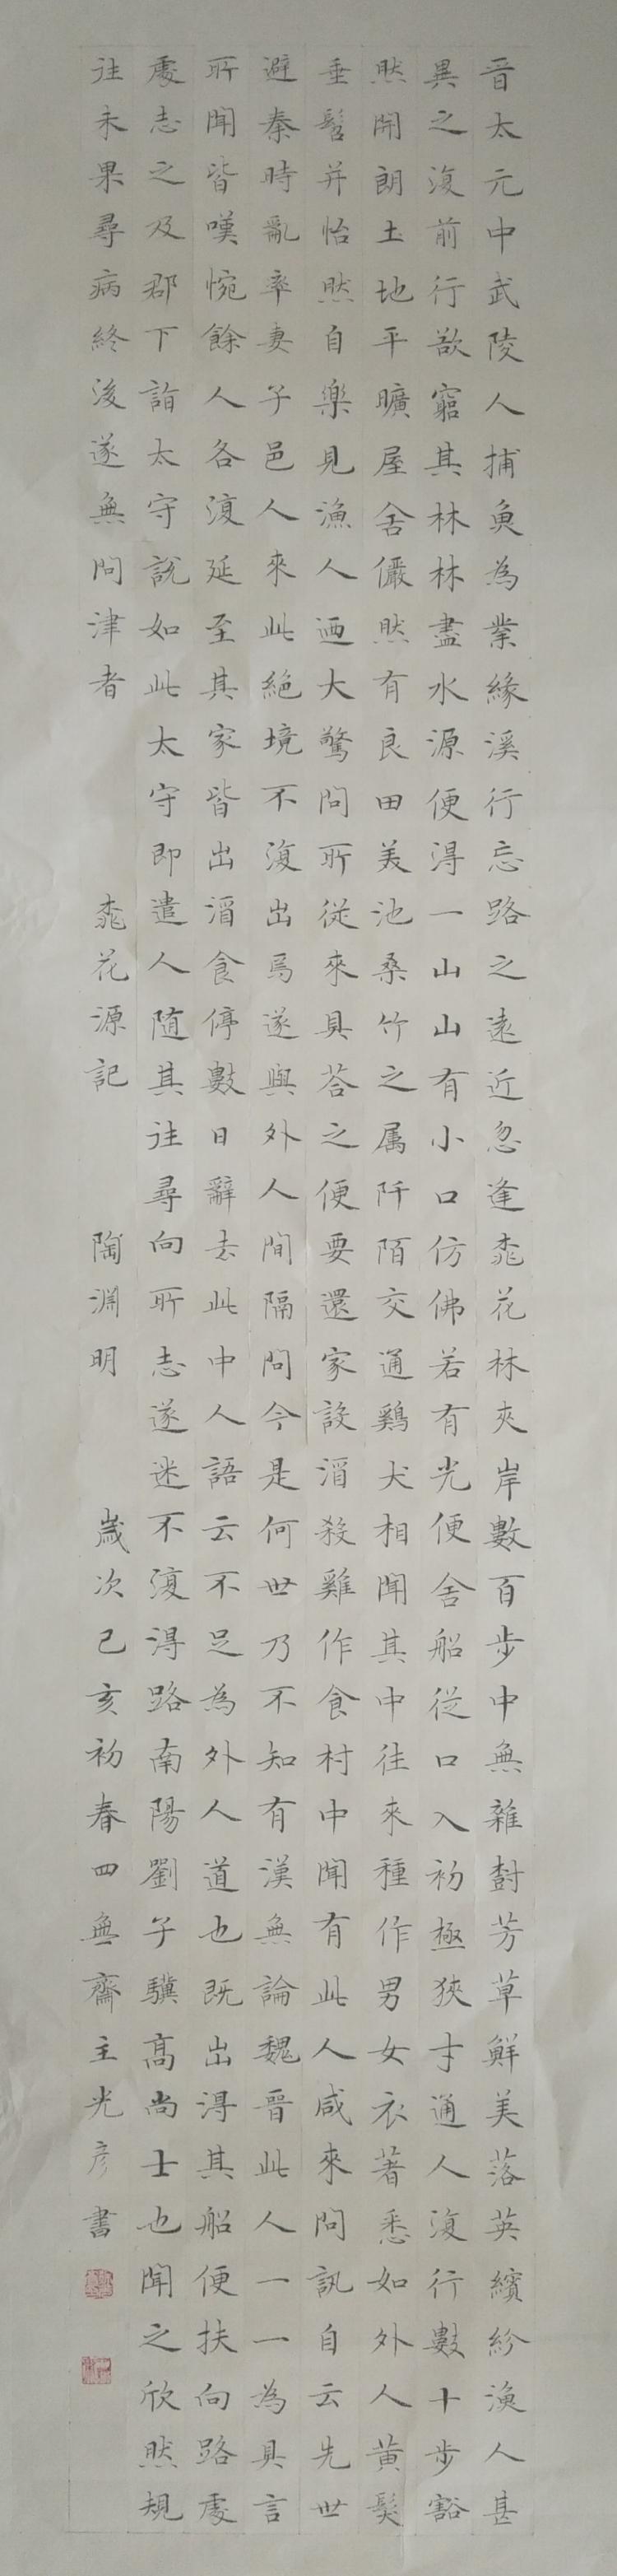 晉太元中武陵人捕魚為業緣溪行忘路之遠近忽逢桃花林夾岸數百步中無雜樹芳草鮮美落英繽紛漁人甚
異之復前行欲窮其林林盡水源便得一山山有小口仿佛若有光便舍船從口入初極狹才通人復行數十步豁
然開朗土地平曠屋舍儼然有良田美池桑竹之属阡陌交通鷄犬相聞其中往來種作男女衣著悉如外人黃髮
垂髫并怡然自樂見漁人迺大驚問所從來具荅之便要還家設酒殺雞作食村中聞有此人咸來問訊自云先世
避秦時亂率妻子邑人來此絕境不復出焉遂與外人間隔問今是何世乃不知有漢無論魏晉此人一一為具言
所聞皆嘆惋餘人各復延至其家皆出酒食停數日辭去此中人語云不足為外人道也既出得其船便扶向路處
處志之及郡下詣太守說如此太守即遣人随其往尋向所志遂迷不復得路南陽劉子驥高尚士也聞之欣然規
往未果尋病終後遂無問津者 桃花源記 陶淵明 歲次己亥初春四無齋主光彥書